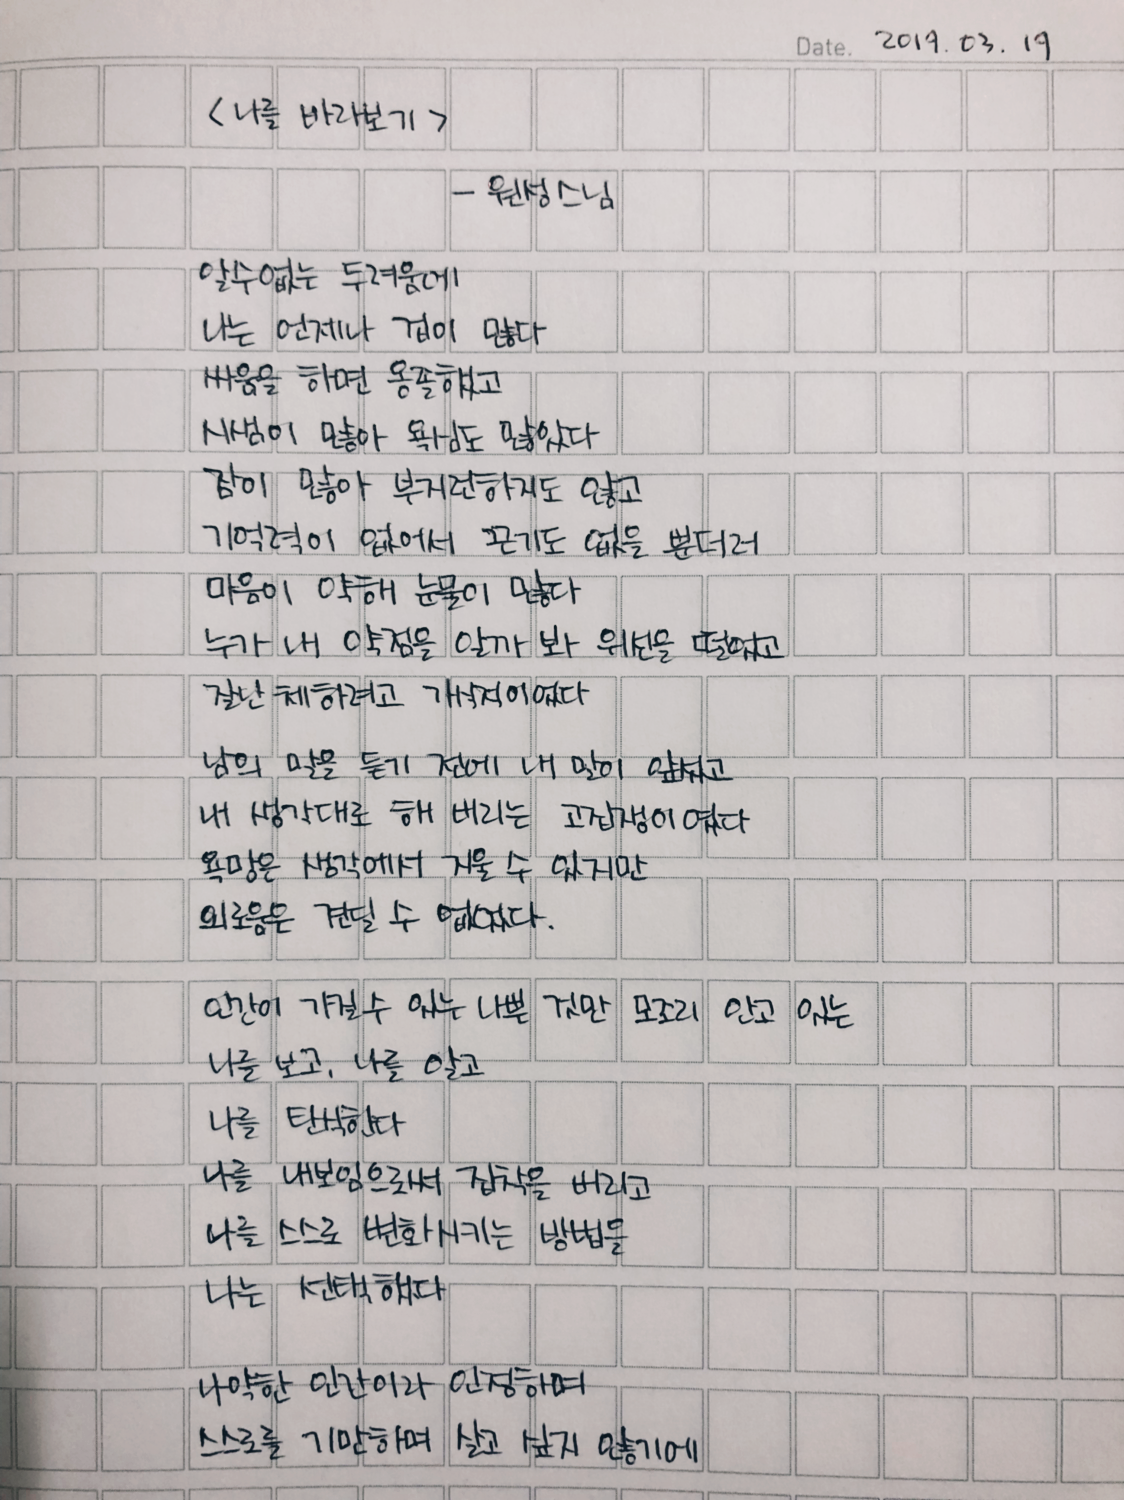 Date. 2019. 03. 19
<나를 바라보기>
- 원성스님
알수없는 두려움에
나는 언제나 겁이 많다
싸움을 하면 옹졸했고
시샘이 많아 욕심도 많았다
잠이 많아 부지런하지도 않고
기억력이 없어서 끈기도 없을 뿐더러
마음이 약해 눈물이 많다
누가 내 약점을 알까 봐 위선을 떨었고
잘난 체하려고 가식적이었다
남의 말을 듣기 전에 내 말이 앞섰고
내 생각대로 해 버리는 고집쟁이였다
욕망은 생각에서 지울 수 있지만
외로움은 견딜 수 없었다.
인간이 가질수 있는 나쁜 것만 모조리 안고 있는
나를 보고, 나를 알고
나를 탄식한다
나를 내보임으로써 집착을 버리고
나를 스스로 변화시키는 방법을
나는 선택했다
나약한 인간이라 인정하며
스스로를 기만하며 살고 싶지 않기에